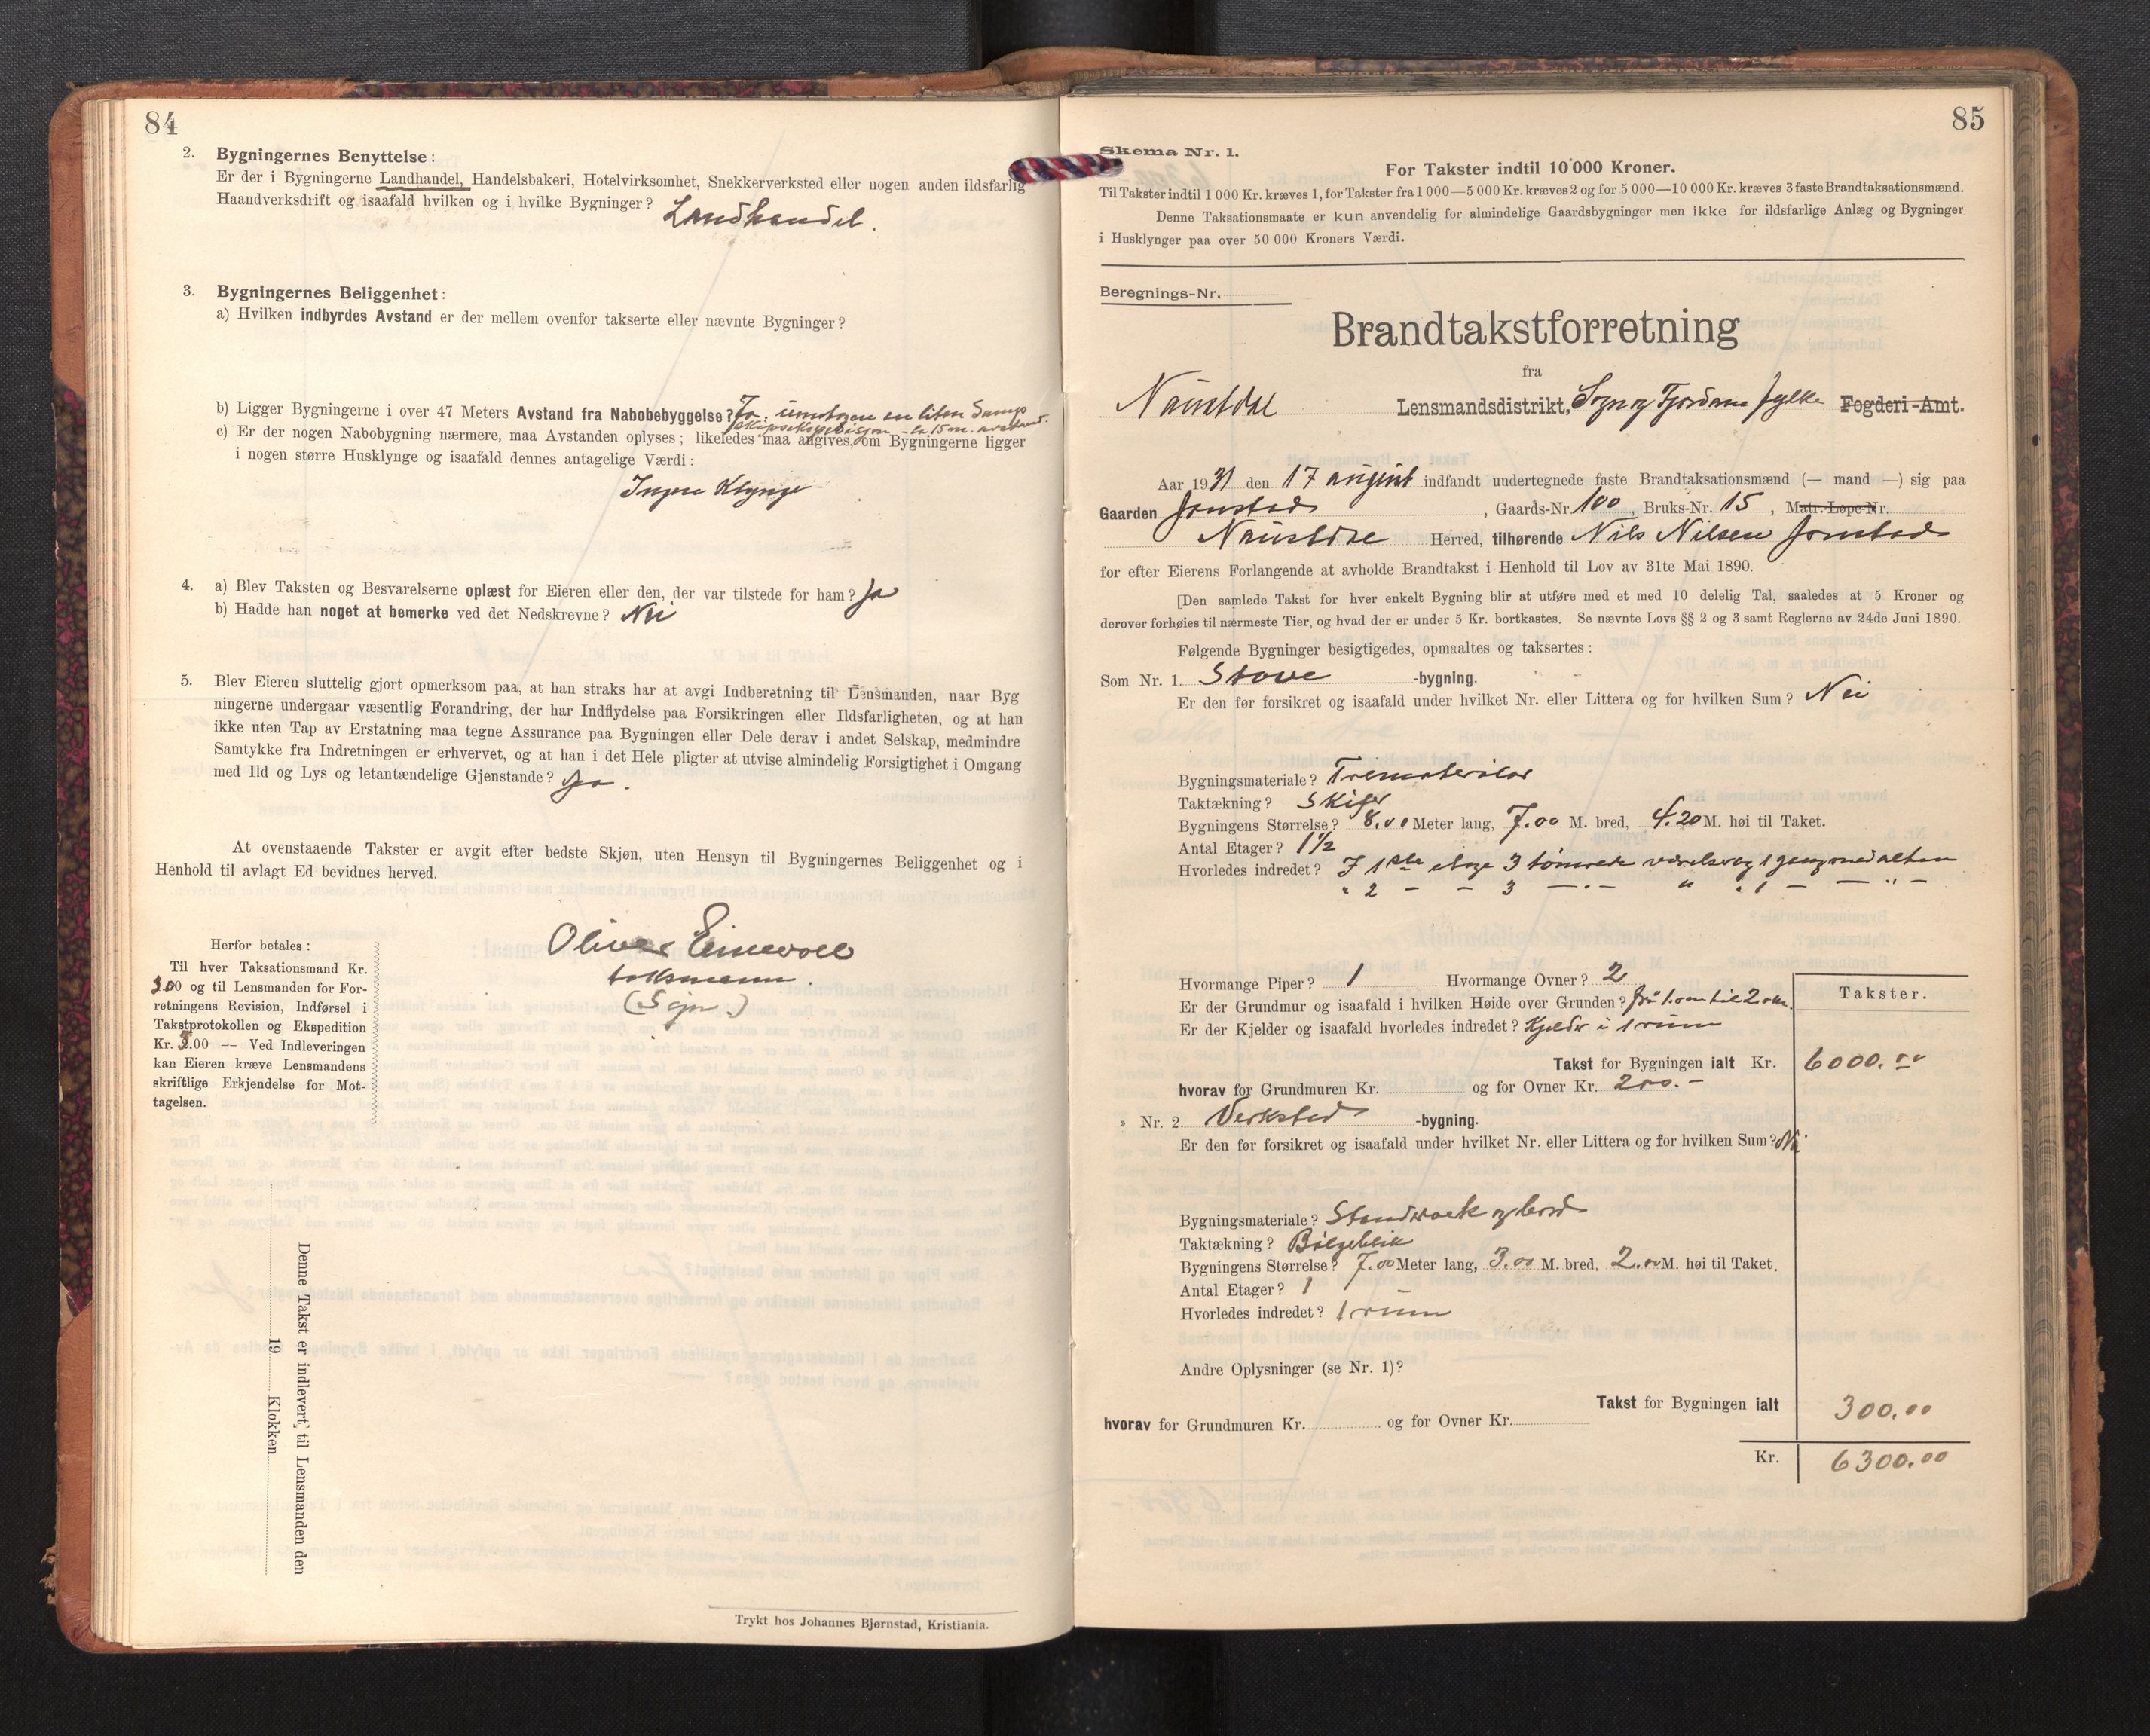 84
2. Bygningernes Benyttelse:
Er der i Bygningerne Landhandel, Handelsbakeri, Hotelvirksomhet, Snekkerverksted eller nogen anden ildsfarlig
Haandverksdrift og isaafald hvilken og i hvilke Bygninger? Landhandel.
3. Bygningernes Beliggenhet:
a) Hvilken indbyrdes Avstand er der mellem ovenfor takserte eller nævnte Bygninger?
b) Ligger Bygningerne i over 47 Meters Avstand fra Nabobebyggelse? Ja, unntagen en liten Damp
skipsekspedisjon - ca 15 m. avstand.
c) Er der nogen Nabobygning nærmere, maa Avstanden oplyses; likeledes maa angives, om Bygningerne ligger
i nogen større Husklynge og isaafald dennes antagelige Værdi:
Ingen Klynge
4. a) Blev Taksten og Besvarelserne oplæst for Eieren eller den, der var tilstede for ham? Ja
b) Hadde han noget at bemerke ved det Nedskrevne? Nei
5. Blev Eieren sluttelig gjort opmerksom paa, at han straks har at avgi Indberetning til Lensmanden, naar Byg
ningerne undergaar væsentlig Forandring, der har Indflydelse paa Forsikringen eller Ildsfarligheten, og at han
ikke uten Tap av Erstatning maa tegne Assurance paa Bygningen eller Dele derav i andet Selskap, medmindre
Samtykke fra Indretningen er erhvervet, og at han i det Hele pligter at utvise almindelig Forsigtighet i Omgang
med Ild og Lys og letantændelige Gjenstande? Ja.
At ovenstaaende Takster er avgit efter bedste Skjøn, uten Hensyn til Bygningernes Beliggenhet og i
Henhold til avlagt Ed bevidnes herved.
Oliver Eimevoll
taksmann.
(Sign.)
Herfor betales:
Til hver Taksationsmand Kr.
3.00 og til Lensmanden for For-
retningens Revision, Indførsel i
Takstprotokollen og Ekspedition
Kr. 3.00 — Ved Indleveringen
kan Eieren kræve Lensmandens
skriftlige Erkjendelse for Mot-
tagelsen.
Denne Takst er indlevert til Lensmanden den
19 Klokken
Trykt hos Johannes Bjørnstad, Kristiania.
85
Skema Nr. 1.
For Takster indtil 10 000 Kroner.
Til Takster indtil 1 000 Kr. kræves 1, for Takster fra 1 000—5 000 Kr. kræves 2 og for 5 000—10 000 Kr. kræves 3 faste Brandtaksationsmænd.
Denne Taksationsmaate er kun anvendelig for almindelige Gaardsbygninger men ikke for ildsfarlige Anlæg og Bygninger
i Husklynger paa over 50 000 Kroners Værdi.
Beregnings-Nr.
Brandtakstforretning
fra
Naustdal Lensmandsdistrikt, Sogn og Fjordane fylke Fogderi-Amt.
Aar 1931 den 17 august indfandt undertegnede faste Brandtaksationsmænd (— mand —) sig paa
Gaarden Jonstad, Gaards-Nr 100, Bruks-Nr. 15, Matr.-Løpe-Nr.
Naustdal Herred, tilhørende Nils Nilsen Jonstad
for efter Eierens Forlangende at avholde Brandtakst i Henhold til Lov av 31te Mai 1890.
[Den samlede Takst for hver enkelt Bygning blir at utføre med et med 10 delelig Tal, saaledes at 5 Kroner og
derover forhøies til nærmeste Tier, og hvad der er under 5 Kr. bortkastes. Se nævnte Lovs §§ 2 og 3 samt Reglerne av 24de Juni 1890.
Følgende Bygninger besigtigedes, opmaaltes og taksertes:
Som Nr. 1. Stove -bygning.
Er den før forsikret og isaafald under hvilket Nr. eller Littera og for hvilken Sum? Nei
Bygningsmateriale? Trematerialer
Taktækning? Skifer
Bygningens Størrelse? 8.00 Meter lang, 7.00 M. bred, 4.20 M. høi til Taket.
Antal Etager? 1½
Hvorledes indredet? I 1ste etage 3 tømrede værelser og 1 gang med altan
" 2 — — 3 — . — " " 1 — — " —
Hvormange Piper? 1 Hvormange Ovner? 2
Er der Grundmur og isaafald i hvilken Høide over Grunden? fra 1. cm til 2. cm.
Er der Kjelder og isaafald hvorledes indredet? Kjelder i 1 rum
Takster.
Takst for Bygningen ialt Kr. 6000.00
hvorav for Grundmuren Kr. og for Ovner Kr. 200.-
» Nr. 2. Verksted -bygning.
Er den før forsikret og isaafald under hvilket Nr. eller Littera og for hvilken Sum? Nei
Bygningsmateriale? Stendverk og bord
Taktækning? Bølgeblik
Bygningens Størrelse? 7.00 Meter lang, 3.00 M. bred, 2.00 M. høi til Taket.
Antal Etager? 1
Hvorledes indredet? 1 rum
Andre Oplysninger (se Nr. 1)?
Takst for Bygningen ialt 300.00
hvorav for Grundmuren Kr. og for Ovner Kr.
Kr. 6300.00